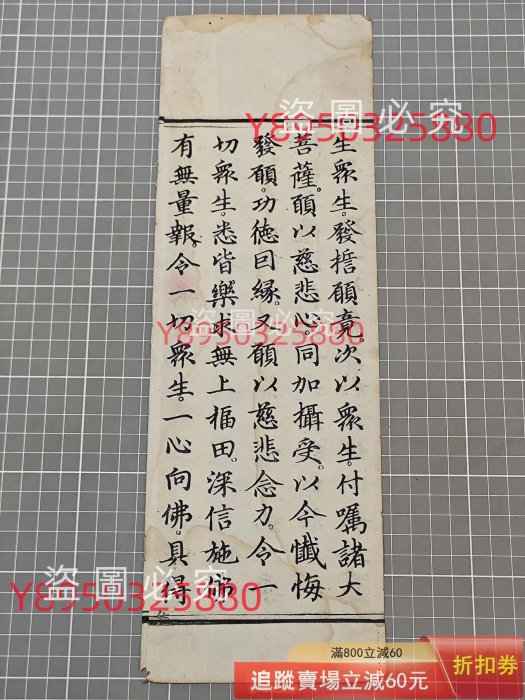 生眾生。發誓願竟。次以眾生。付囑諸大
菩薩。願以慈悲心。同加攝受。以今懺悔
發願。功德因緣。又願以慈悲念力。令一
切眾生。悉皆樂求無上福田。深信施佛
有無量報。令一切眾生。一心向佛。具得
盜圖必究
Y8950325880
盜圖必究
Y8950325880
盜圖必究
Y8950325880
滿800立減60
追蹤賣場立減60元
折扣券